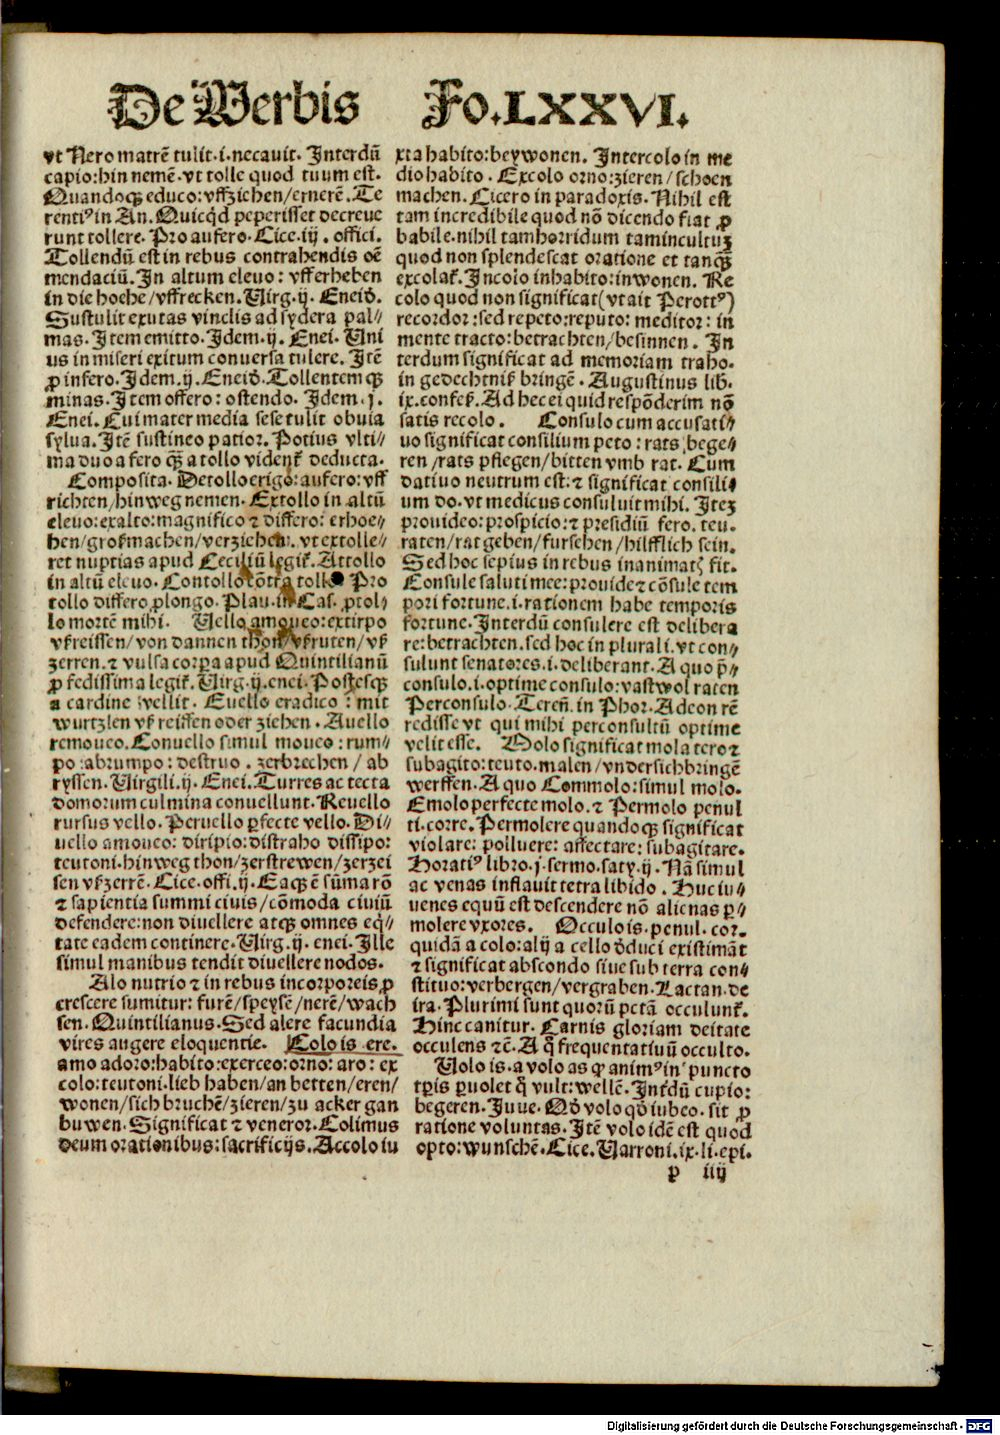 De Verbis Fo. LXXVI.
vt Nero matrē tulit.i.necauit. Interdū
capio:hin nemē.vt tolle quod tuum est.
Quandoqꝫ educo:vffzichen/ernerē. Te
rentiꝰ in An. Quicq̄d peperisset decreue
runt tollere. Pro aufero. Cice.iij.offici.
Tollendū est in rebus contrahendis oē
mendaciū. In altum eleuo: vfferheben
in die hoehe/vffrecken. Uirg.ij. Eneid.
Sustulit exutas vinclis ad sydera pal//
mas. Item emitto. Idem.ij. Enei. Uni
us in miseri exitum conuersa tulere. Itē
ꝓ infero. Idem.ij. Eneid. Tollentemqꝫ
minas. Item offero: ostendo. Idem.j.
Enei. Cui mater media sese tulit obuia
sylua. Itē sustineo patior. Potius vlti//
ma duo a fero qꝫ a tollo vident᷑ deducta.
Composita. Detollo erigo:aufero:vff
richten/hinweg nemen. Extollo in altū
eleuo:exalto:magnifico ⁊ differo: erhoe//
hen/groß machen/verziehen. vt extolle//
ret nuptias apud Ceciliū legit᷑. Attollo
in altū eleuo. Contollo cōtra tollo Pro
tollo differo ꝓlongo. Plau.in Cas. ꝓtol//
lo mortē mihi. Uello amoueo:extirpo
vßreissen/von dannen thon/vßruten/vß
zerren.⁊ vulsa corꝑa apud Quintilianū
ꝓ fedissima legit᷑. Uirg.ij.enei. Postesqꝫ
a cardine vellit. Euello eradico: mit
wurtzlen vß reissen oder ziehen. Auello
remoueo. Conuello simul moueo: rum//
po:abrumpo: destruo. zerbrechen/ab
ryssen. Uirgili.ij. Enei. Turres ac tecta
domorum culmina conuellunt. Reuello
rursus vello. Peruello ꝑfecte vello. Di//
uello amoueo: diripio:distraho dissipo:
teutoni.hinweg thon/zerstrewen/zerzei
sen vßzerrē. Cice.offi.ij. Eaqꝫ ē sūma rō
⁊ sapientia summi ciuis/cōmoda ciuiū
defendere:non diuellere atqꝫ omnes eq̄//
tate eadem continere. Uirg.ij.enei. Ille
simul manibus tendit diuellere nodos.
Alo nutrio ⁊ in rebus incorporeis ꝓ
crescere sumitur: furē/speysē/nerē/wach
sen. Quintilianus. Sed alere facundia
vires augere eloquentie. Colo is ere.
amo adoro:habito:exerceo:orno:aro: ex
colo:teutoni.lieb haben/an betten/eren/
wonen/sich bruchē/zieren/zu acker gan
buwen. Significat ⁊ veneror. Colimus
deum orationibus:sacrificijs. Accolo iu
xta habito:beywonen. Intercolo in me
dio habito. Excolo orno:zieren/schoen
machen. Cicero in paradoxis. Nihil est
tam incredibile quod nō dicendo fiat ꝓ
babile.nihil tam horridum tam incultuꝫ
quod non splendescat oratione et tanqꝫ
excolat᷑. Incolo inhabito:inwonen. Re
colo quod non significat(vt ait Perottꝰ)
recordor:sed repeto:reputo: meditor: in
mente tracto:betrachten/besinnen. In
terdum significat ad memoriam traho.
in gedechtniß bringē. Augustinus lib.
ix.confess. Ad hec ei quid respōderim nō
satis recolo. Consulo cum accusati//
uo significat consilium peto: rats bege//
ren/rats pflegen/bitten vmb rat. Cum
datiuo neutrum est:⁊ significat consili//
um do.vt medicus consuluit mihi. Iteꝫ
prouideo:prospicio:⁊ presidiū fero. teu.
raten/rat geben/fursehen/hilfflich sein.
Sed hoc sepius in rebus inanimatꝭ fit.
Consule saluti mee:prouide ⁊ cōsule tem
pori fortune.i.rationem habe temporis
fortune. Interdū consulere est delibera
re:betrachten.sed hoc in plurali.vt con//
sulunt senatores.i.deliberant. A quo p̄//
consulo.i.optime consulo:vast wol raten
Perconsulo. Teren̄.in Phor. Adeon rē
redisse vt qui mihi perconsultū optime
velit esse. Molo significat mola tero ⁊
subagito:teuto.malen/vndersich bringē
werffen. A quo Commolo:simul molo.
Emolo perfecte molo.⁊ Permolo penul
ti.corre. Permolere quandoqꝫ significat
violare: polluere: affectare: subagitare.
Horatiꝰ libro.j.sermo.saty.ij. Nā simul
ac venas inflauit tetra libido. Huc iu//
uenes equū est descendere nō alienas ꝑ//
molere vxores. Occulo is.penul.cor.
quidā a colo:alij a cello ꝺduci existimāt
⁊ significat abscondo siue sub terra con//
stituo:verbergen/vergraben. Lactan.de
ira. Plurimi sunt quorū pctā occulunt᷑.
Hinc canitur. Carnis gloriam deitate
occulens ⁊c̄. A q̊ frequentatiuū occulto.
Uolo is.a volo as qꝛ animꝰ in puncto
tꝑis ꝑuolet q̊ vult:wellē. Intꝺū cupio:
begeren. Juue. Qꝺ volo qꝺ iubeo. sit ꝓ
ratione voluntas. Itē volo idē est quod
opto:wunschē. Cice. Uarroni.ix.li.epi.
p iiij
Digitalisierung gefördert durch die Deutsche Forschungsgemeinschaft - DFG